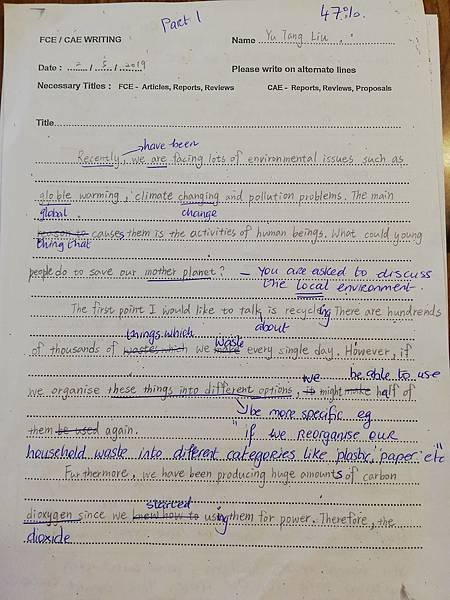 Part 1
47%.
FCE / CAE WRITING
Name Yu Tang Liu
Date : 2 / 5 / 2019
Please write on alternate lines
Necessary Titles : FCE - Articles, Reports, Reviews CAE - Reports, Reviews, Proposals
Title
have been
Recently, we are facing lots of environmental issues such as
globle warming, climate changing and pollution problems. The main
global change
reason to causes them is the activities of human beings. What could young
thing that
people do to save our mother planet? – You are asked to discuss
the local environment.
The first point I would like to talk is recycling There are hundrends
things which waste about
of thousands of waste which we make every single day. However, if
we be able to use
we organise these things into different options, it might make half of
be more specific eg
them be used again. "if we REORGANISE OUR
household waste into different categories like plastic, paper etc"
Furthermore, we have been producing huge amounts of carbon
started
dioxygen since we knew how to using them for power. Therefore, the
dioxide